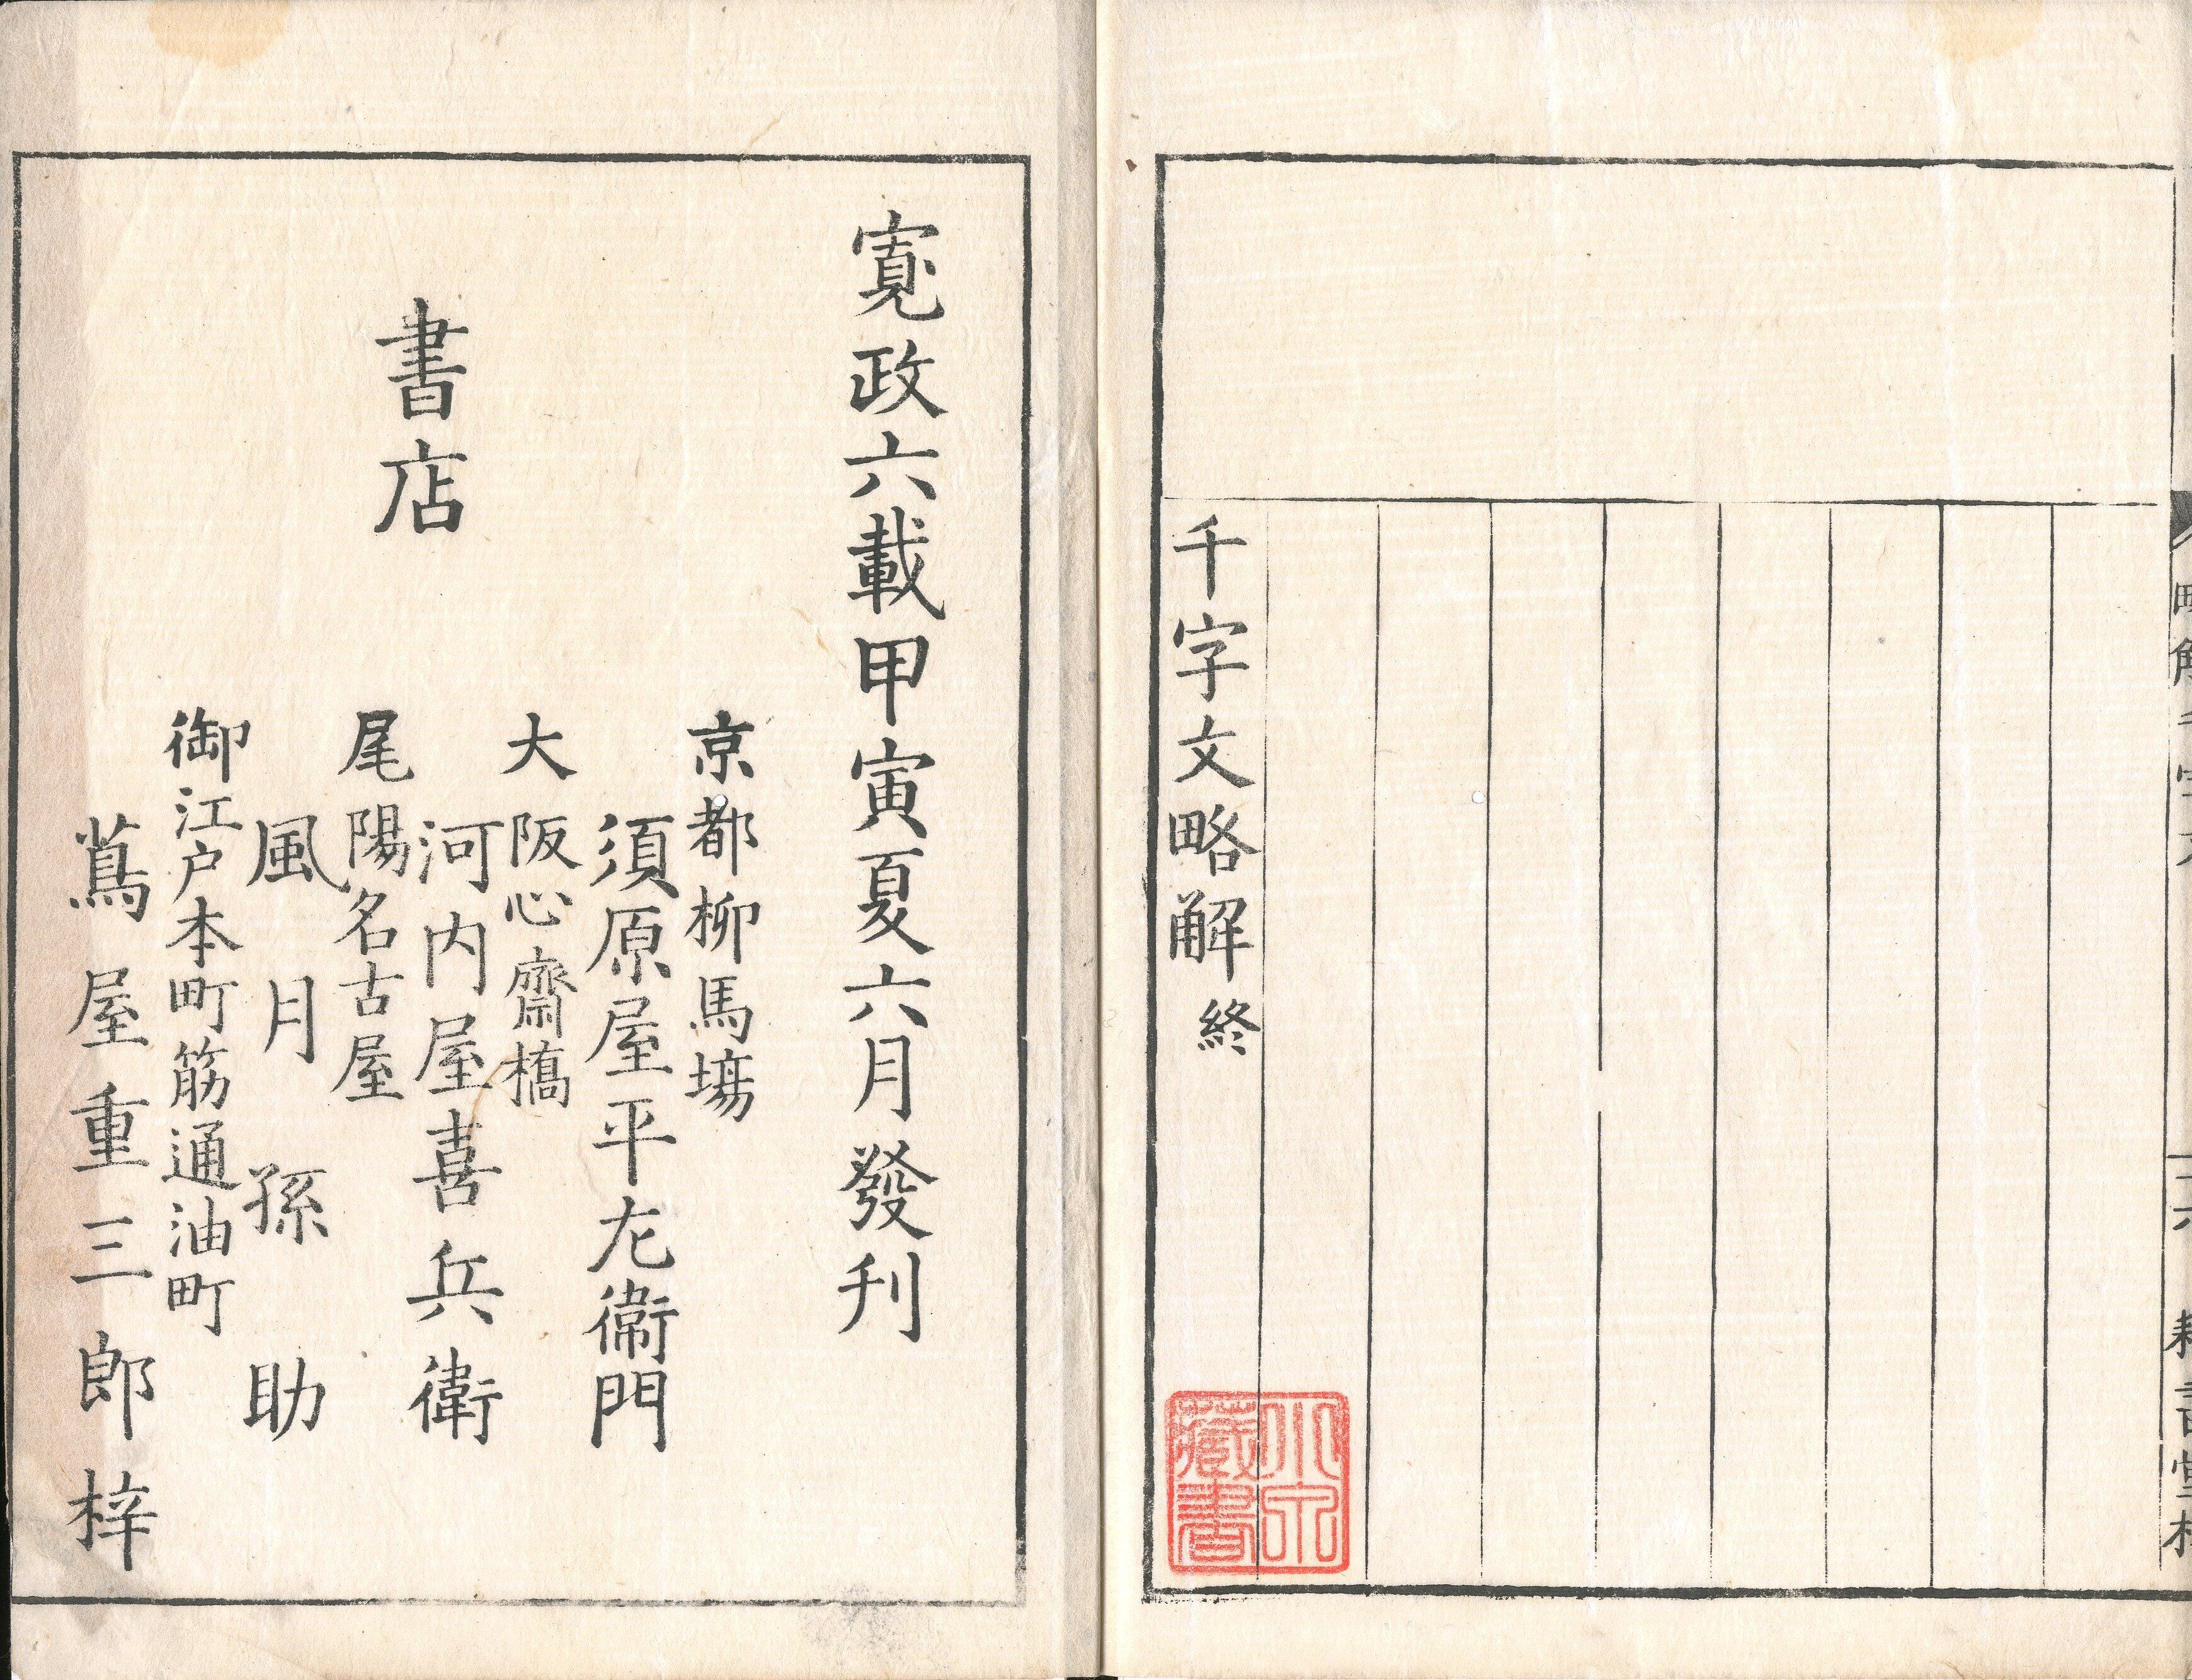 略解千字文
二六
耕書堂梓
千字文略解 終
藏書
寛政六載甲寅夏六月發刋
書店
京都柳馬塲
須原屋平左衞門
大阪心齋橋
河内屋喜兵衛
尾陽名古屋
風月孫助
御江戸本町筋通油町
蔦屋重三郎梓